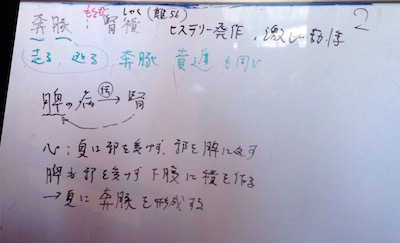 2
奔豚：腎積 (難56) ヒステリー発作、激しい動悸
走る、 奔豚 賁 も同じ
脾の病 → 腎
心：夏は邪を受けず、邪を脾に返す
脾も邪を受けず 下腹に積を作る
→夏に奔豚を形成する